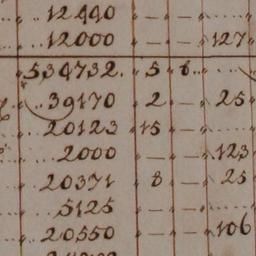 12440 — —
12000 — — 127
534732 5 6
39170 2 — 25
20123 15 —
2000 — — 123
20371 8 — 25
5125 — —
20550 — — 106